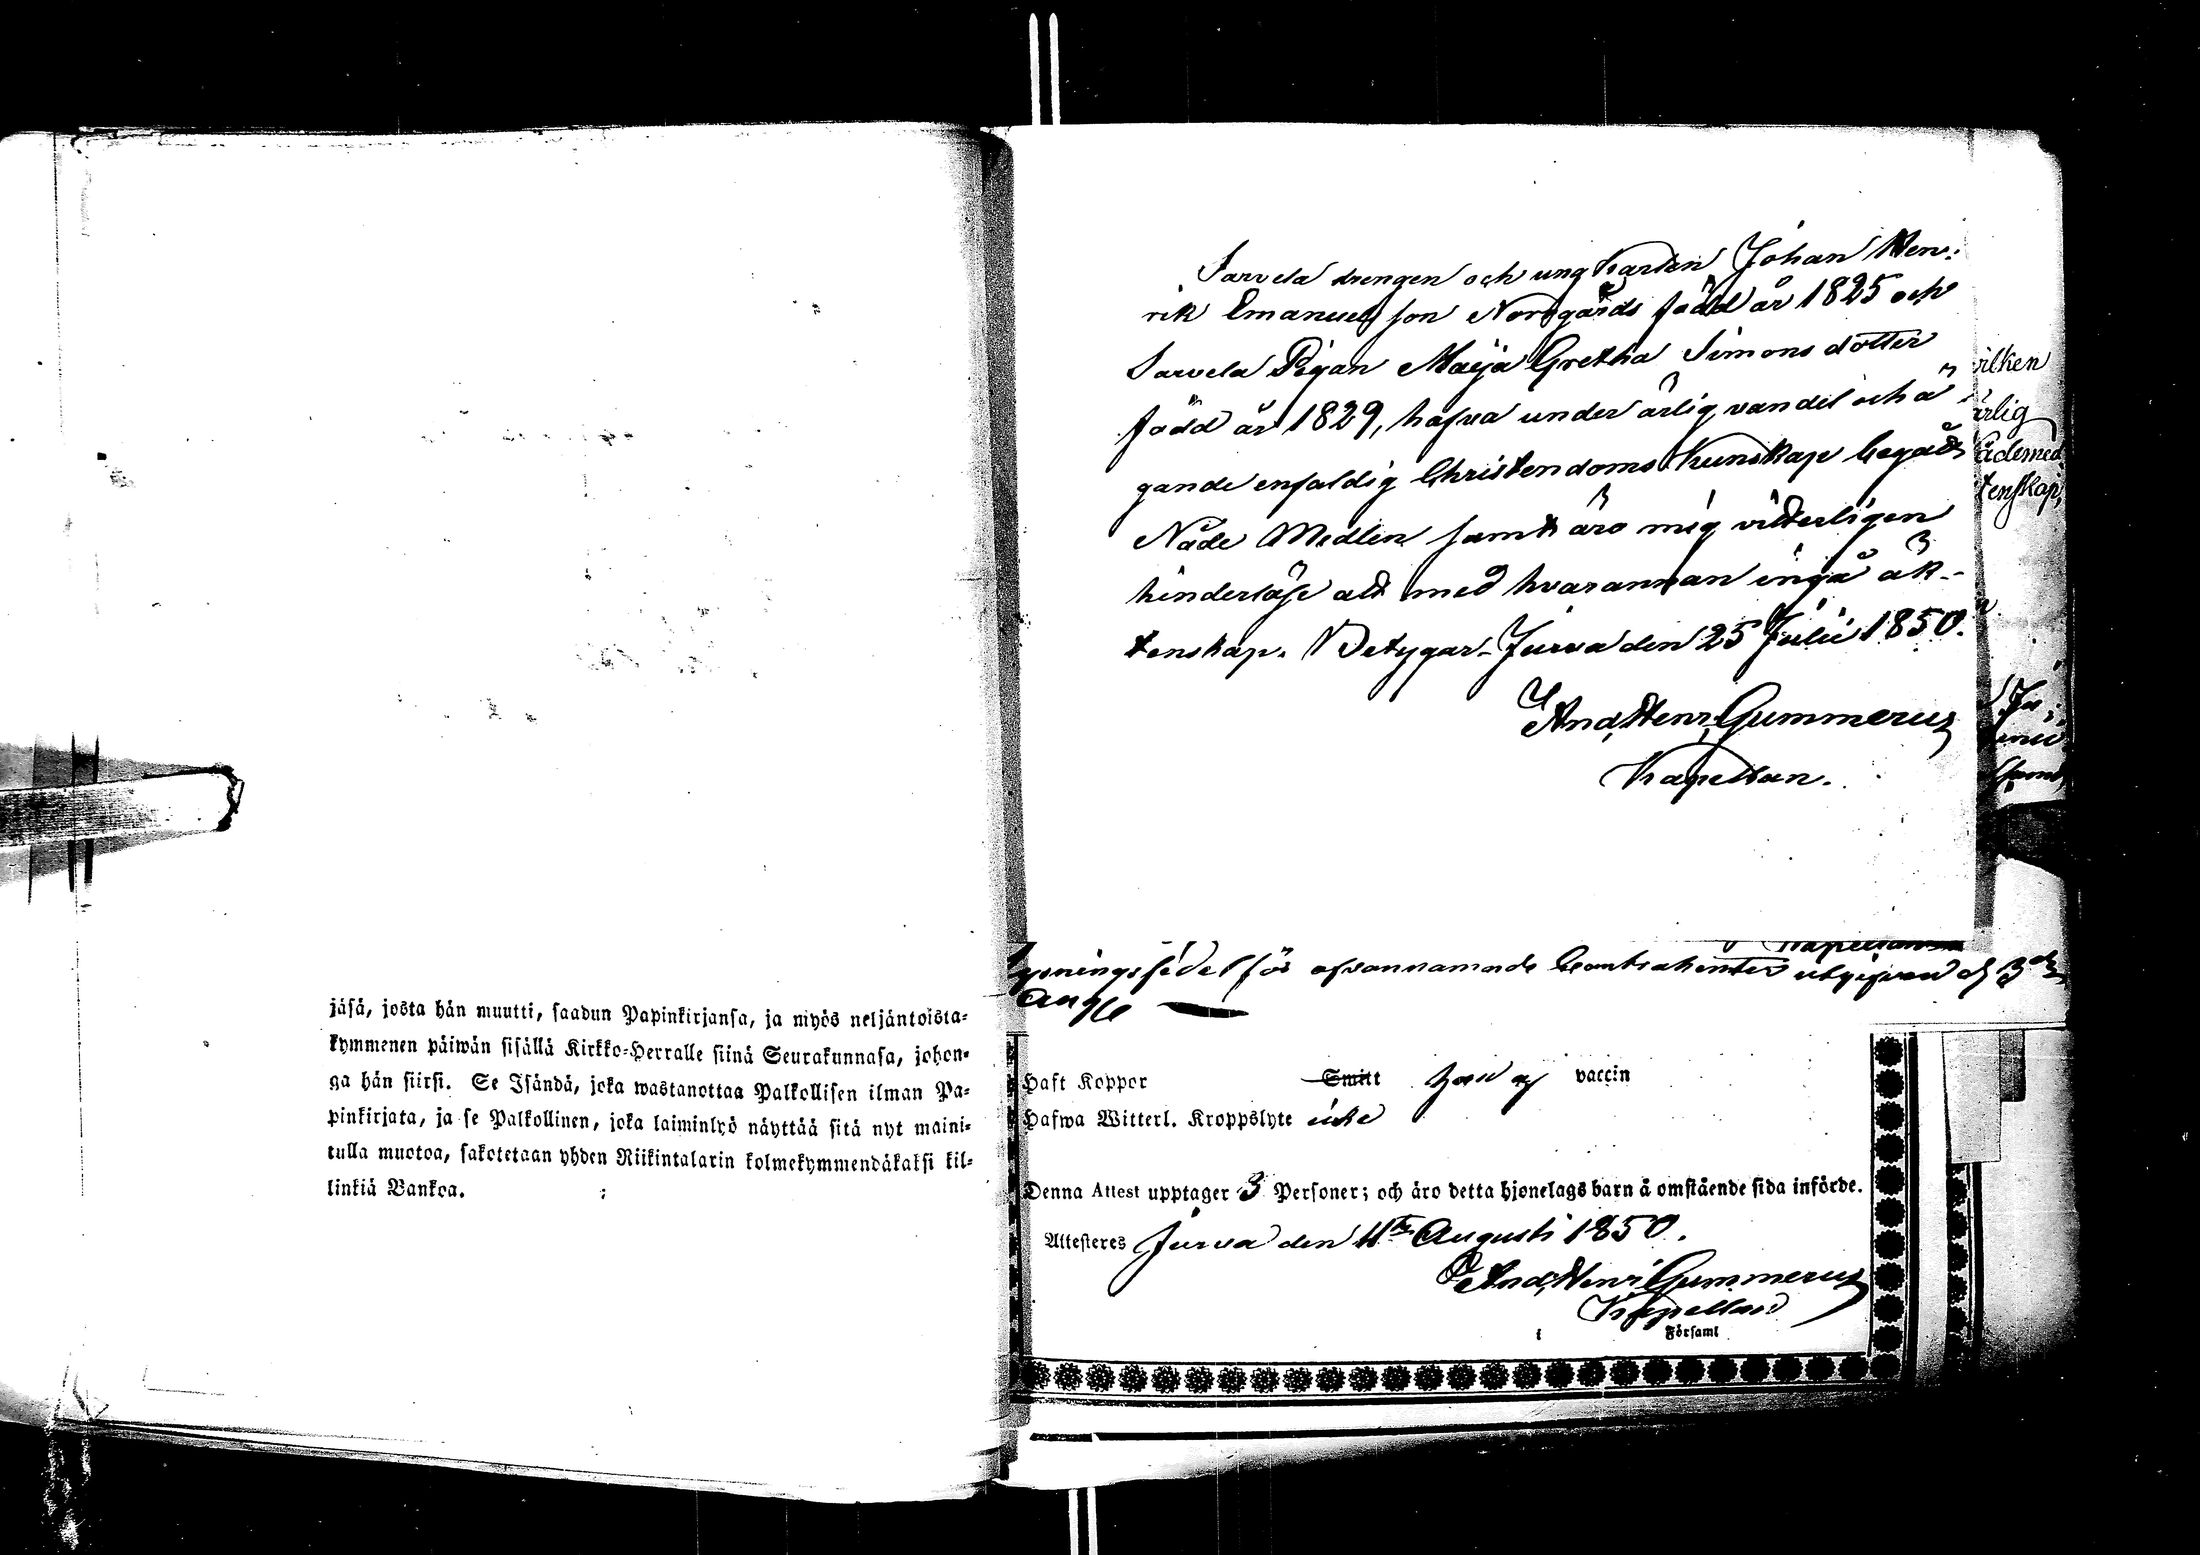 jäsä, josta hän muutti, saadun Papinkirjansa, ja myös neljäntoista-
kymmenen päiwän sisällä Kirkko-Herralle siinä Seurakunnasa, johon-
ga hän siirsi. Se Isändä, joka wastanottaa Palkollisen ilman Pa-
pinkirjata, ja se Palkollinen, joka laiminlyö näyttää sitä nyt maini-
tulla muotoa, sakotetaan yhden Riikintalarin kolmekymmendäkaksi kil-
linkiä Bankoa.
Sarvela drengen och ungkarlen Johan Hen-
rik Emanuelsson Norrgårds född år 1825 och
Sarvela Pigan Maija Gretha Simonsdotter
född år 1829, hafva under ärlig vandel och ä
gande enfaldig Christendoms Kunskap begådt
Nåde Medlen samt äro mig vitterligen
hinderlöse att med hvarannan ingå äk-
tenskap. Betygar Jurva den 25 Julii 1850.
And. Henr. Gummerus
Kapellan.
vilken
ärlig
Nådemed
tenskap,
Kapellan
ysningssedel för ofvannämnde Contrahenter utgifven d 3
Aug
Haft Koppor Smitt haft vaccin
Hafwa Witterl. Kroppslyte icke
Denna Attest upptager 3 Personer; och äro detta hjonelags barn å omstående sida införde.
Attesteres Jurva den 4 Augusti 1850.
And. Henr. Gummerus
Kapellan
i Församl